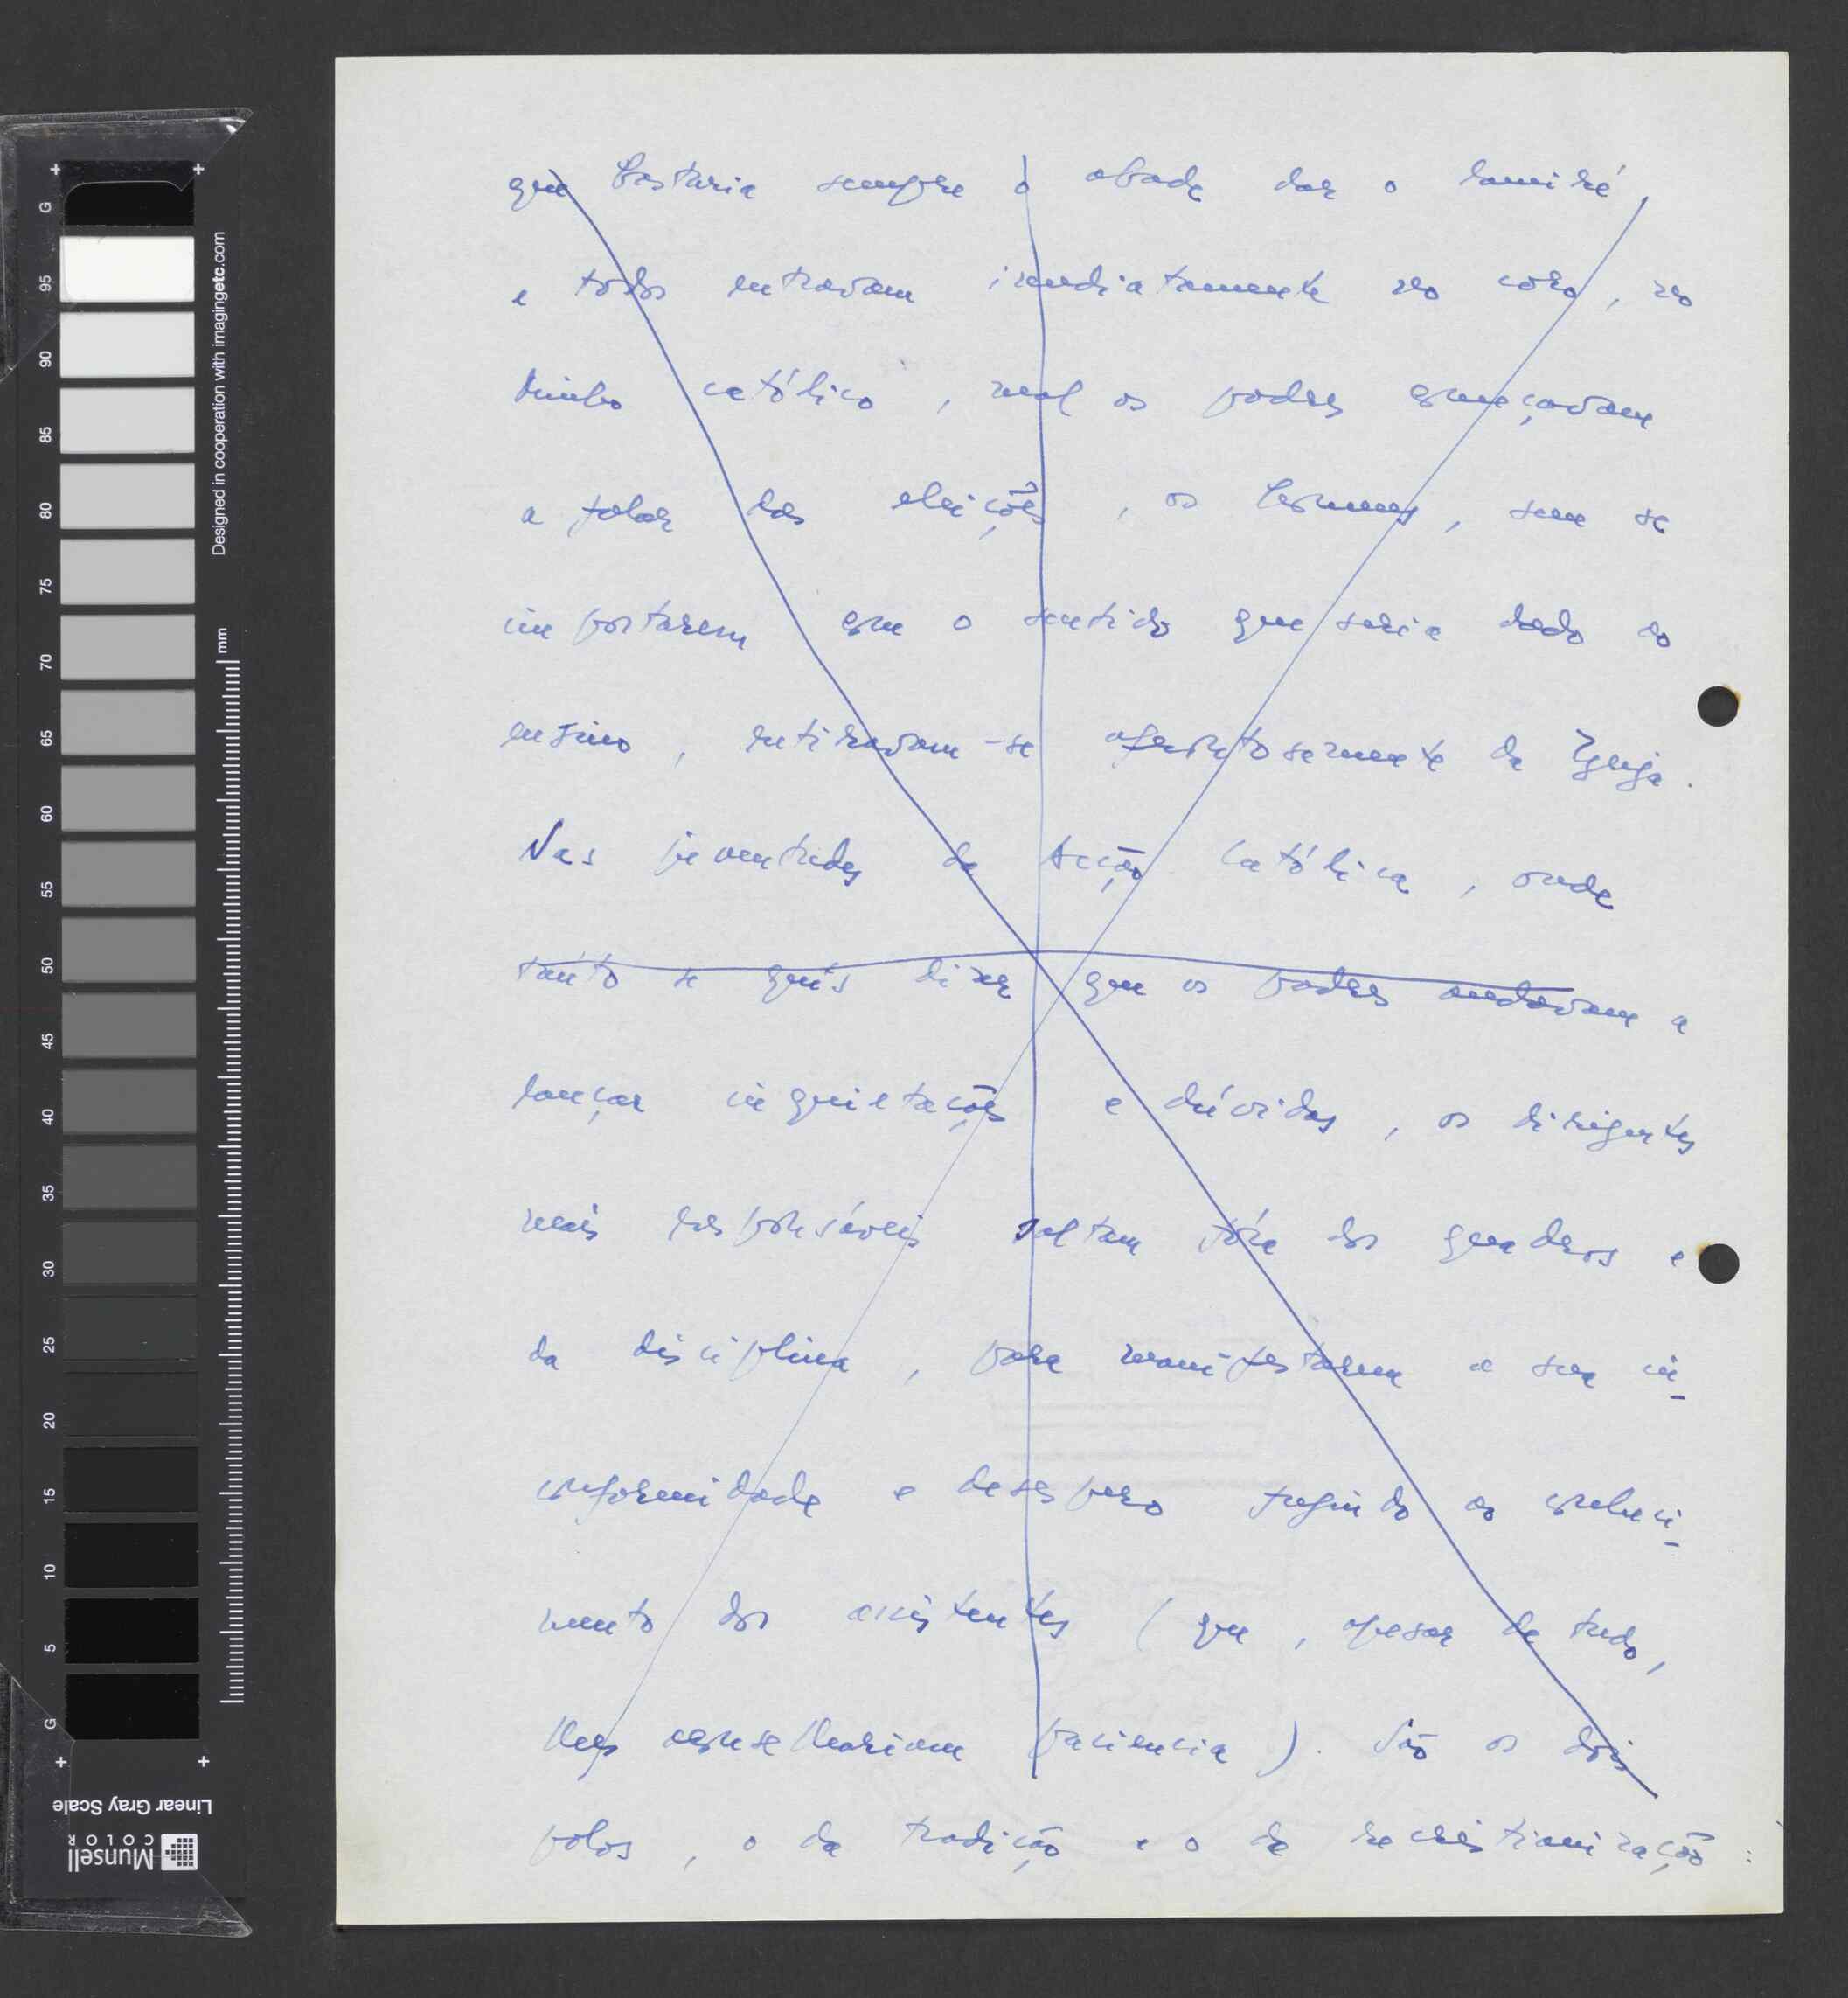 que bastaria sempre o abade dar o lamiré,
e todos entravam imediatamente no côro, no
Minho católico, mal os padres começavam
a falar das eleições, os homens, sem se
importarem com o sentido que seria dado ao
ensino, retiravam-se aparatosamente da Igreja.
Nas juventudes da Acção Católica, onde
tanto se quis dizer que os padres andavam a
lançar inquietações e dúvidas, os dirigentes
mais responsáveis saltam fóra dos quadros e
da disciplina, para manifestarem a sua in-
conformidade e desespero fugindo ao conheci-
mento dos assistentes (que, apesar de tudo,
lhes aconselhariam paciencia). São os dois
polos, o da tradição e o da recristianização:
G 95 90 85 80 75 70 65 60 55 50 45 40 35 30 25 20 15 10 5 G
Designed in cooperation with imagingetc.com
mm
Linear Gray Scale
Munsell
COLOR